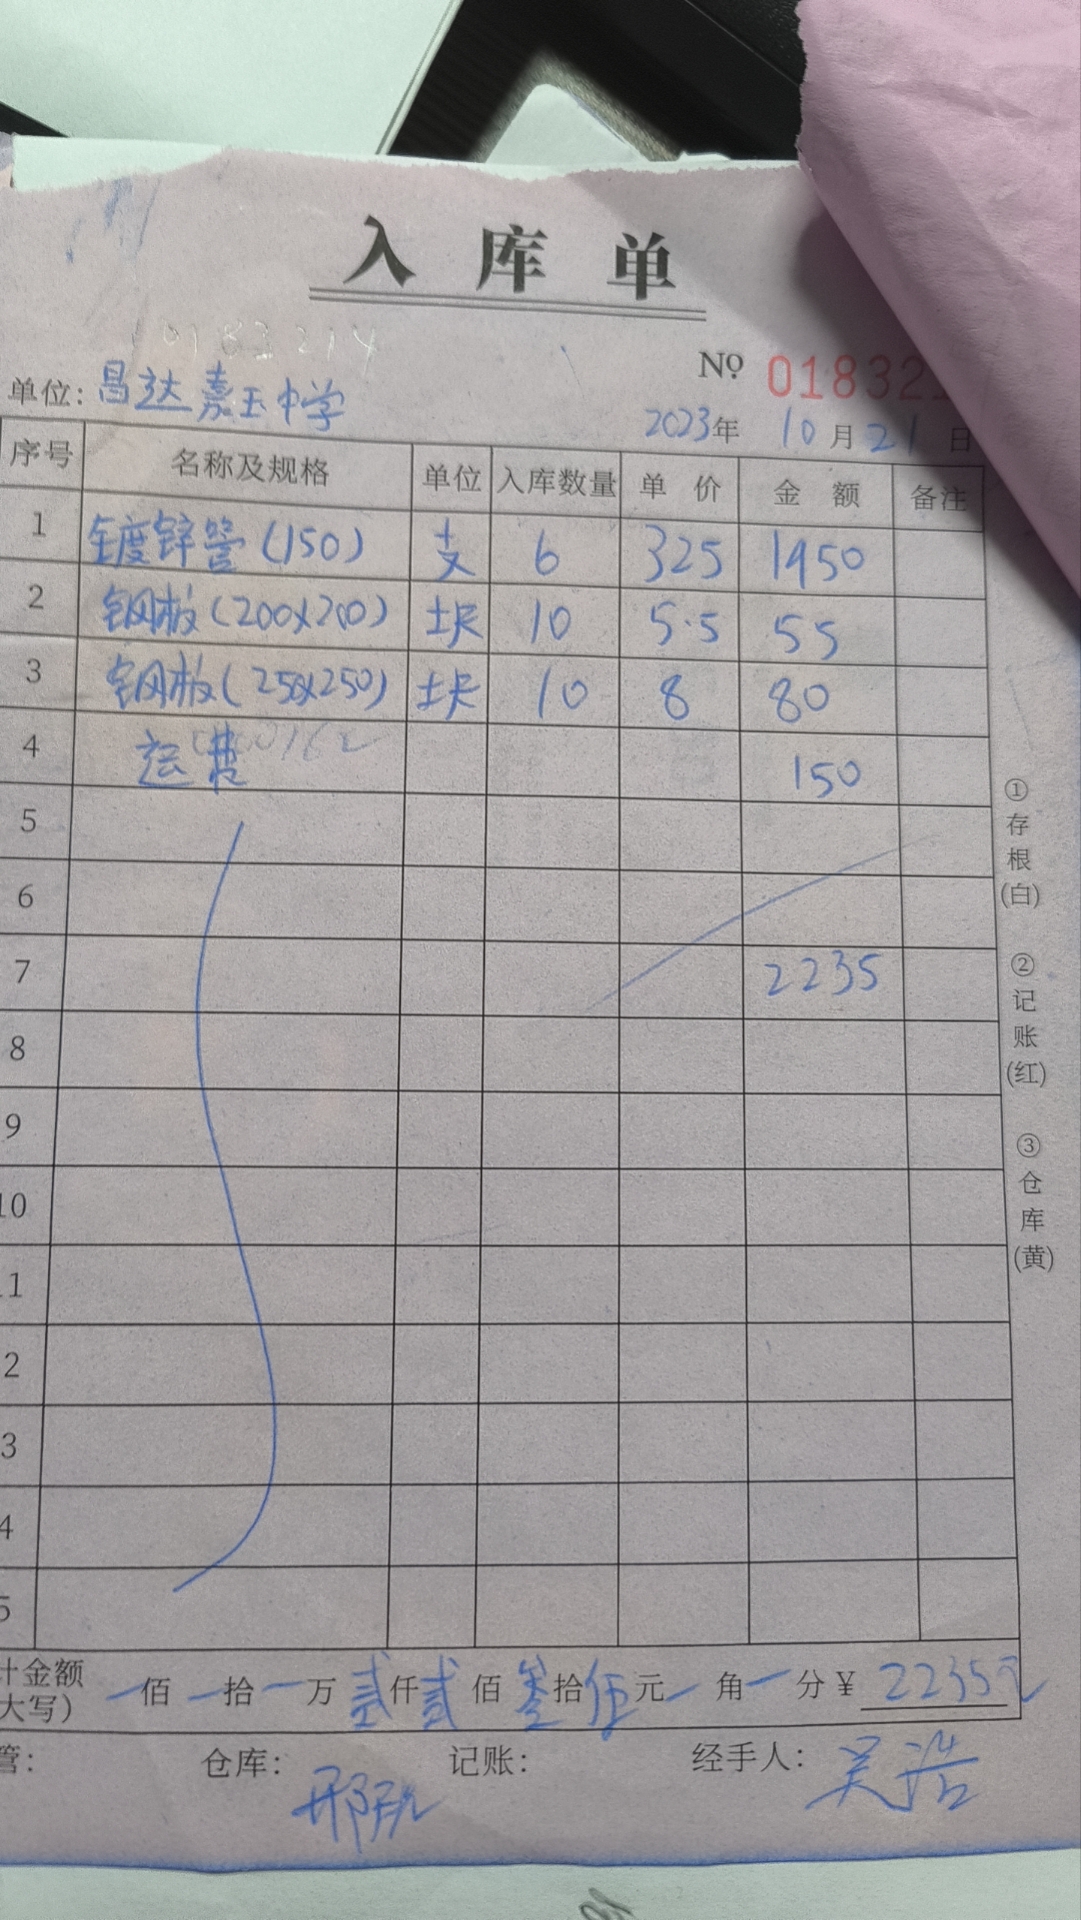 入库单
0183214
№ 01832
单位: 昌达嘉玉中学
2023年 10月21日
序号 名称及规格 单位 入库数量 单价 金额 备注
1 镀锌管(150) 支 6 325 1950
2 钢板(200x200) 块 10 5.5 55
3 钢板(250x250) 块 10 8 80
4 运费 150
5
6
7 2235
8
9
10
11
2
3
4
5
计金额 一佰一拾一万贰仟贰佰叁拾伍元一角一分¥ 2235元
大写)
管: 仓库: 邢 记账: 经手人: 吴浩
①存根(白) ②记账(红) ③仓库(黄)